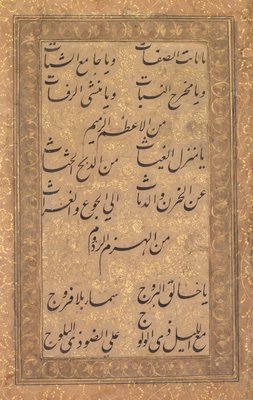 يا ثابت الصفات ويا جامع الشتات
ويا مخرج النبات ويا منشئ الرفات
من الاعظم الرميم
يا منزل الغياث من الدلج الحثاث
عن الحزن والدماث الي الجوع والغراث
من الهزم الرزوم
يا خالق البروج سماء بلا فروج
مع الليل ذي الولوج علي الضوء ذي البلوج